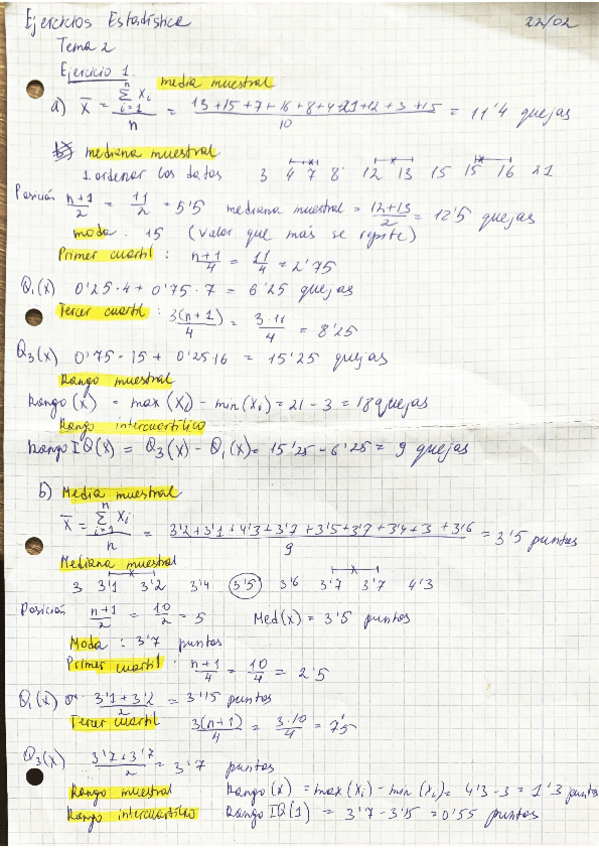 Ejercicios Estadística 22/02
Tema 2
Ejercicio 1. media muestral
a) X̄ = Σ_{i=1}^{n} Xi / n = 13+15+7+16+8+4+21+12+3+15 / 10 = 11'4 quejas
b) mediana muestral
1 ordenar los datos 3 4 7 8 12 13 15 15 16 21
Posición n+1/2 = 11/2 = 5'5 mediana muestral = 12+13/2 = 12'5 quejas
moda : 15 (valor que más se repite)
Primer cuartil : n+1/4 = 11/4 = 2'75
Q₁(x) 0'25·4 + 0'75·7 = 6'25 quejas
Tercer cuartil : 3(n+1)/4 = 3·11/4 = 8'25
Q₃(x) 0'75·15 + 0'25·16 = 15'25 quejas
Rango muestral
Rango (x) = max (Xi) - min (Xi) = 21 - 3 = 18 quejas
Rango intercuartílico
Rango IQ(x) = Q₃(x) - Q₁(x) = 15'25 - 6'25 = 9 quejas
b) Media muestral
X̄ = Σ_{i=1}^{n} Xi / n = 3'2+3'1+4'3+3'7+3'5+3'7+3'4+3+3'6 / 9 = 3'5 puntos
Mediana muestral
3 3'1 3'2 3'4 3'5 3'6 3'7 3'7 4'3
Posición n+1/2 = 10/2 = 5 Med(x) = 3'5 puntos
Moda : 3'7 puntos
Primer cuartil : n+1/4 = 10/4 = 2'5
Q₁(x) 3'1+3'2/2 = 3'15 puntos
Tercer cuartil 3(n+1)/4 = 3·10/4 = 7'5
Q₃(x) 3'7+3'7/2 = 3'7 puntos
Rango muestral Rango (x) = max (Xi) - min (Xi) = 4'3 - 3 = 1'3 puntos
Rango intercuartílico Rango IQ(1) = 3'7 - 3'15 = 0'55 puntos